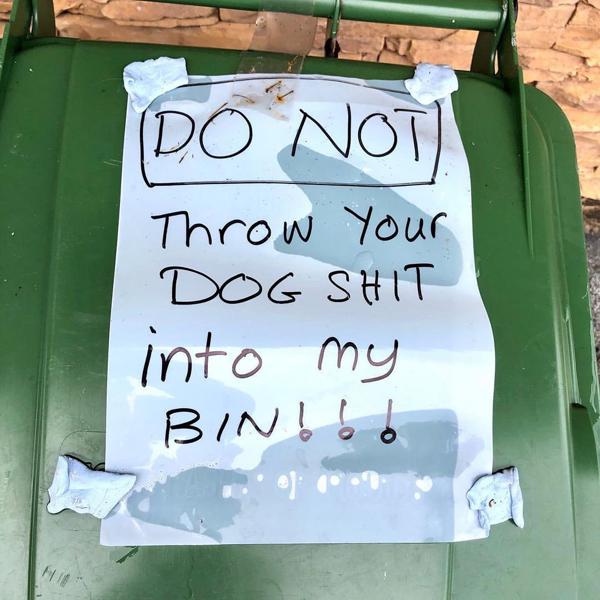 DO NOT
Throw Your
DOG SHIT
into my
BIN!!!